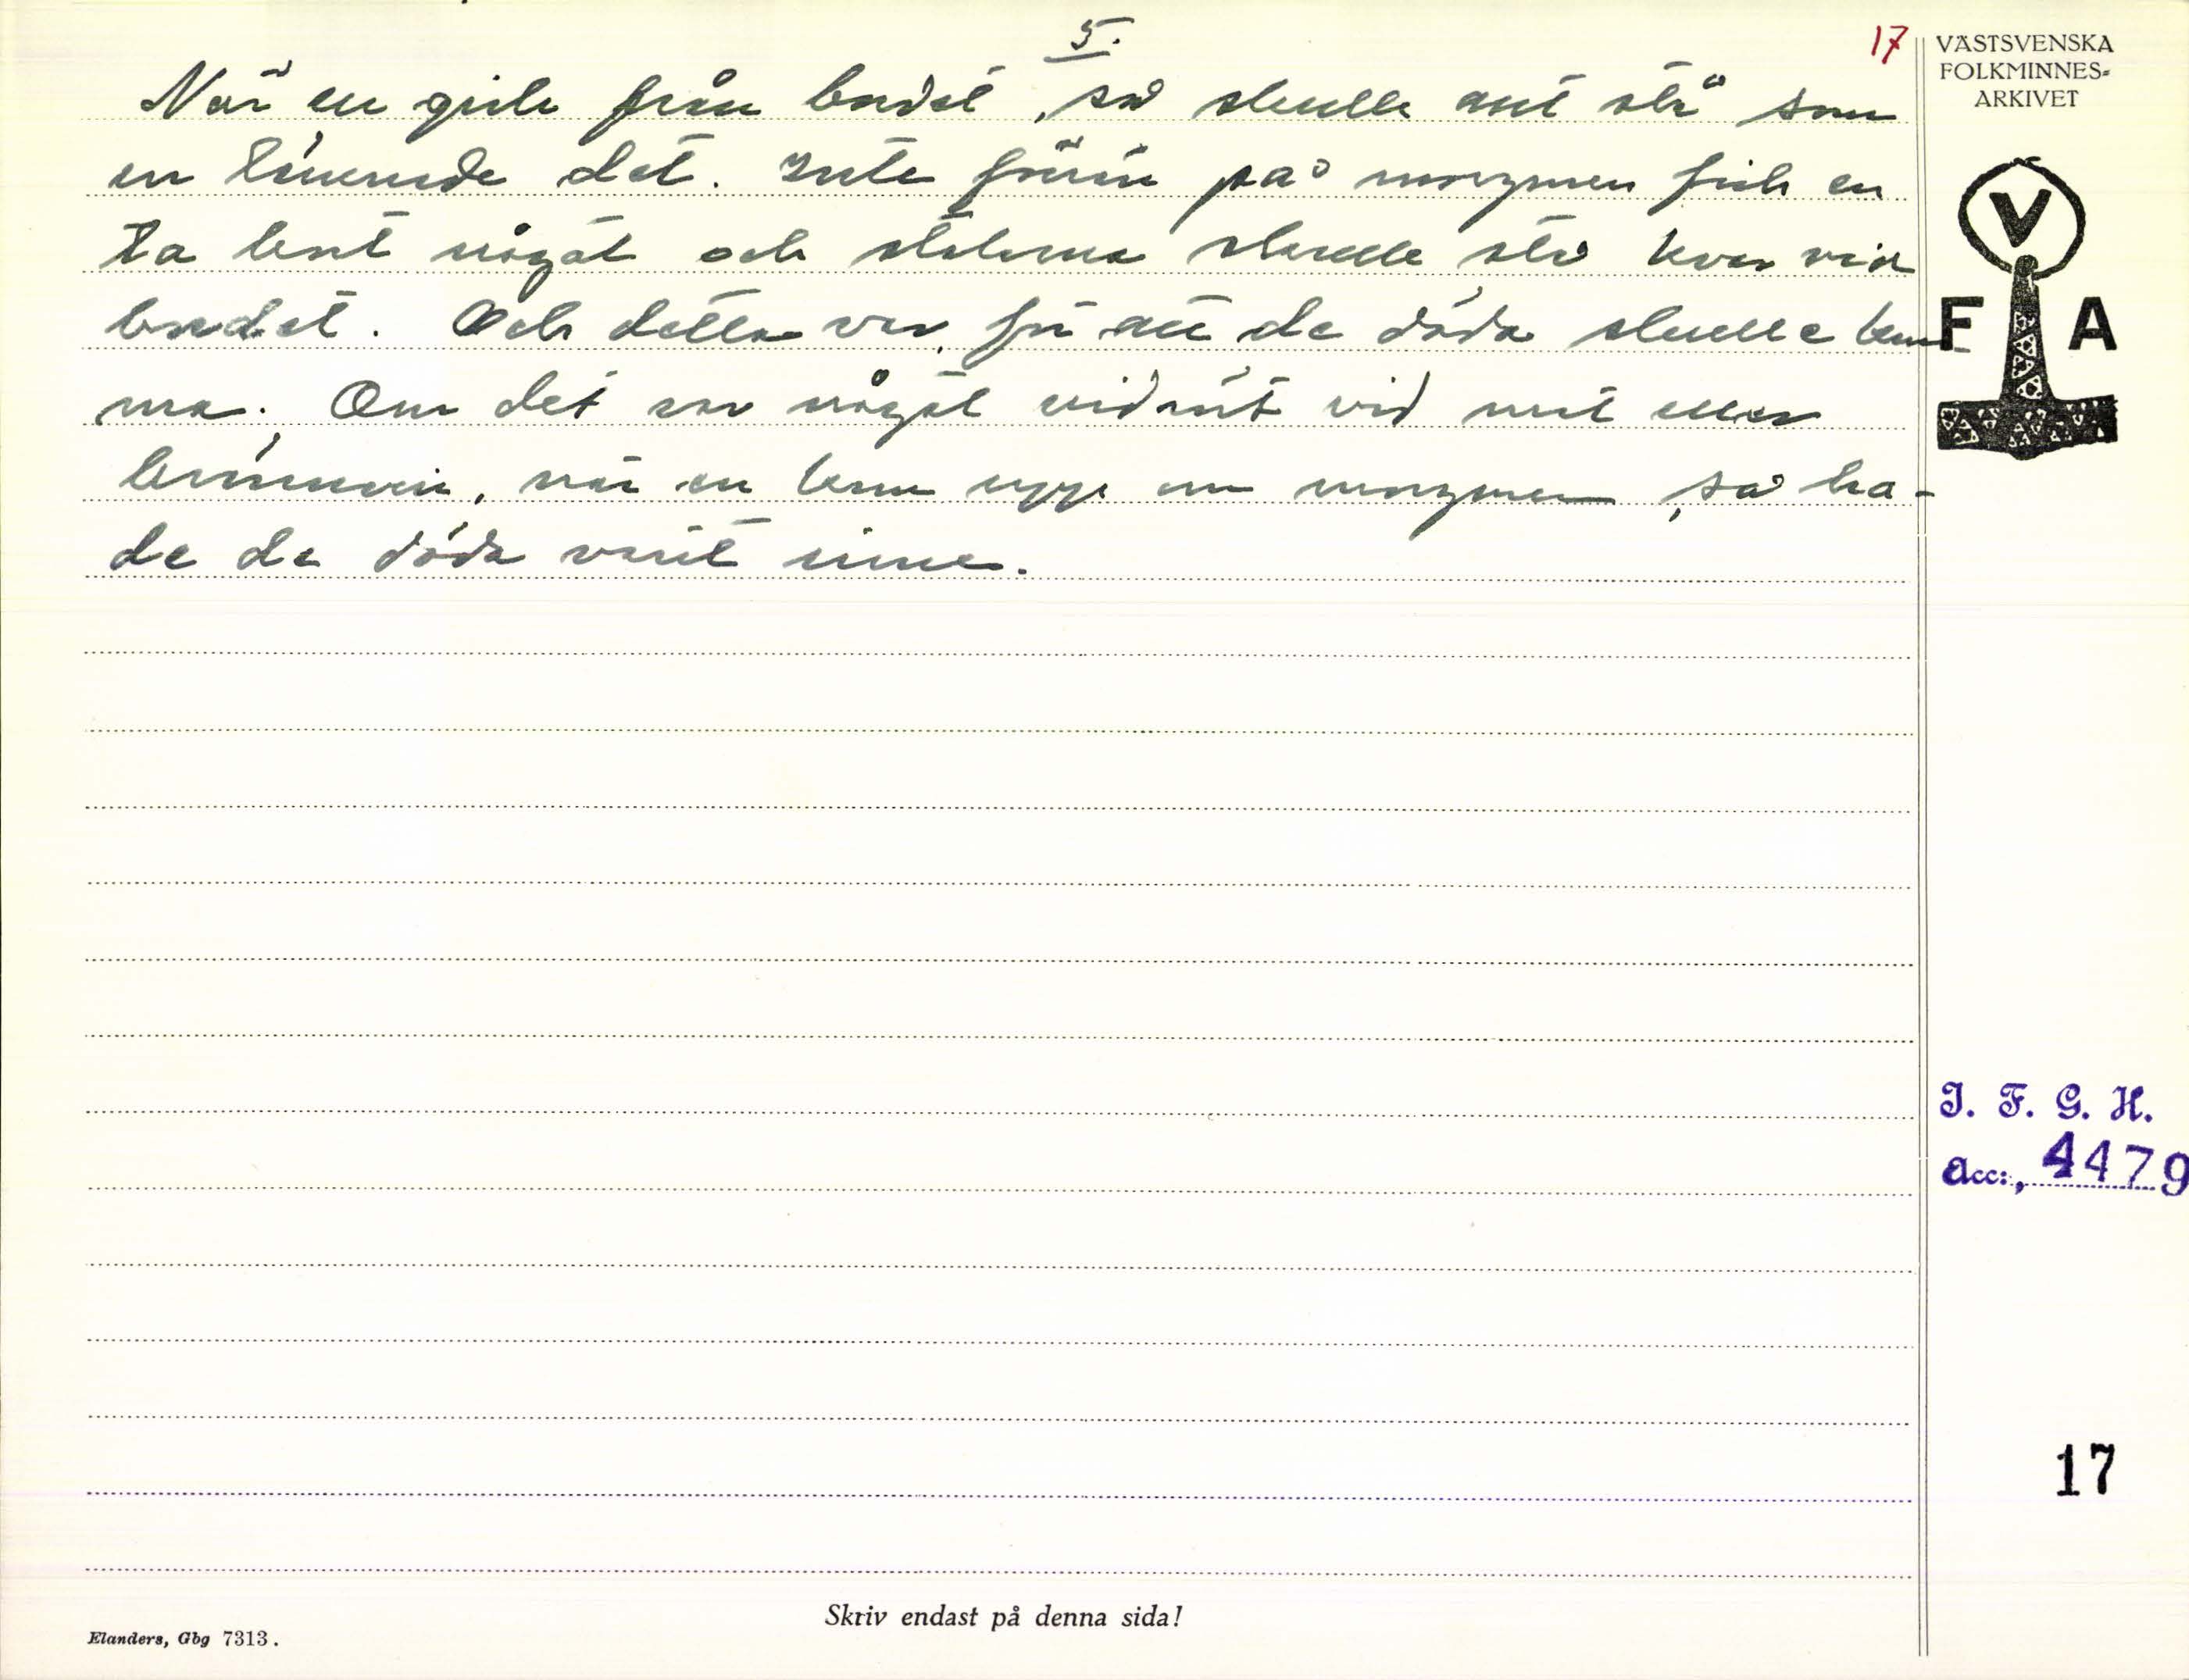 5.
17
När en gick från bordet, så skulle allt stå som
en lämnade det. Inte förrän på morgonen fick en
ta bort något och stolarna skulle stå kvar vid
bordet. Och detta var för att de döda skulle kom-
ma. Om det var något vidrört vid mat eller
brännvin, när en kom upp om morgonen, så ha-
de de döda varit inne.
VÄSTSVENSKA
FOLKMINNES-
ARKIVET
V
F A
I. F. G. H.
Acc:, 4479
17
Skriv endast på denna sida!
Elanders, Gbg 7313.